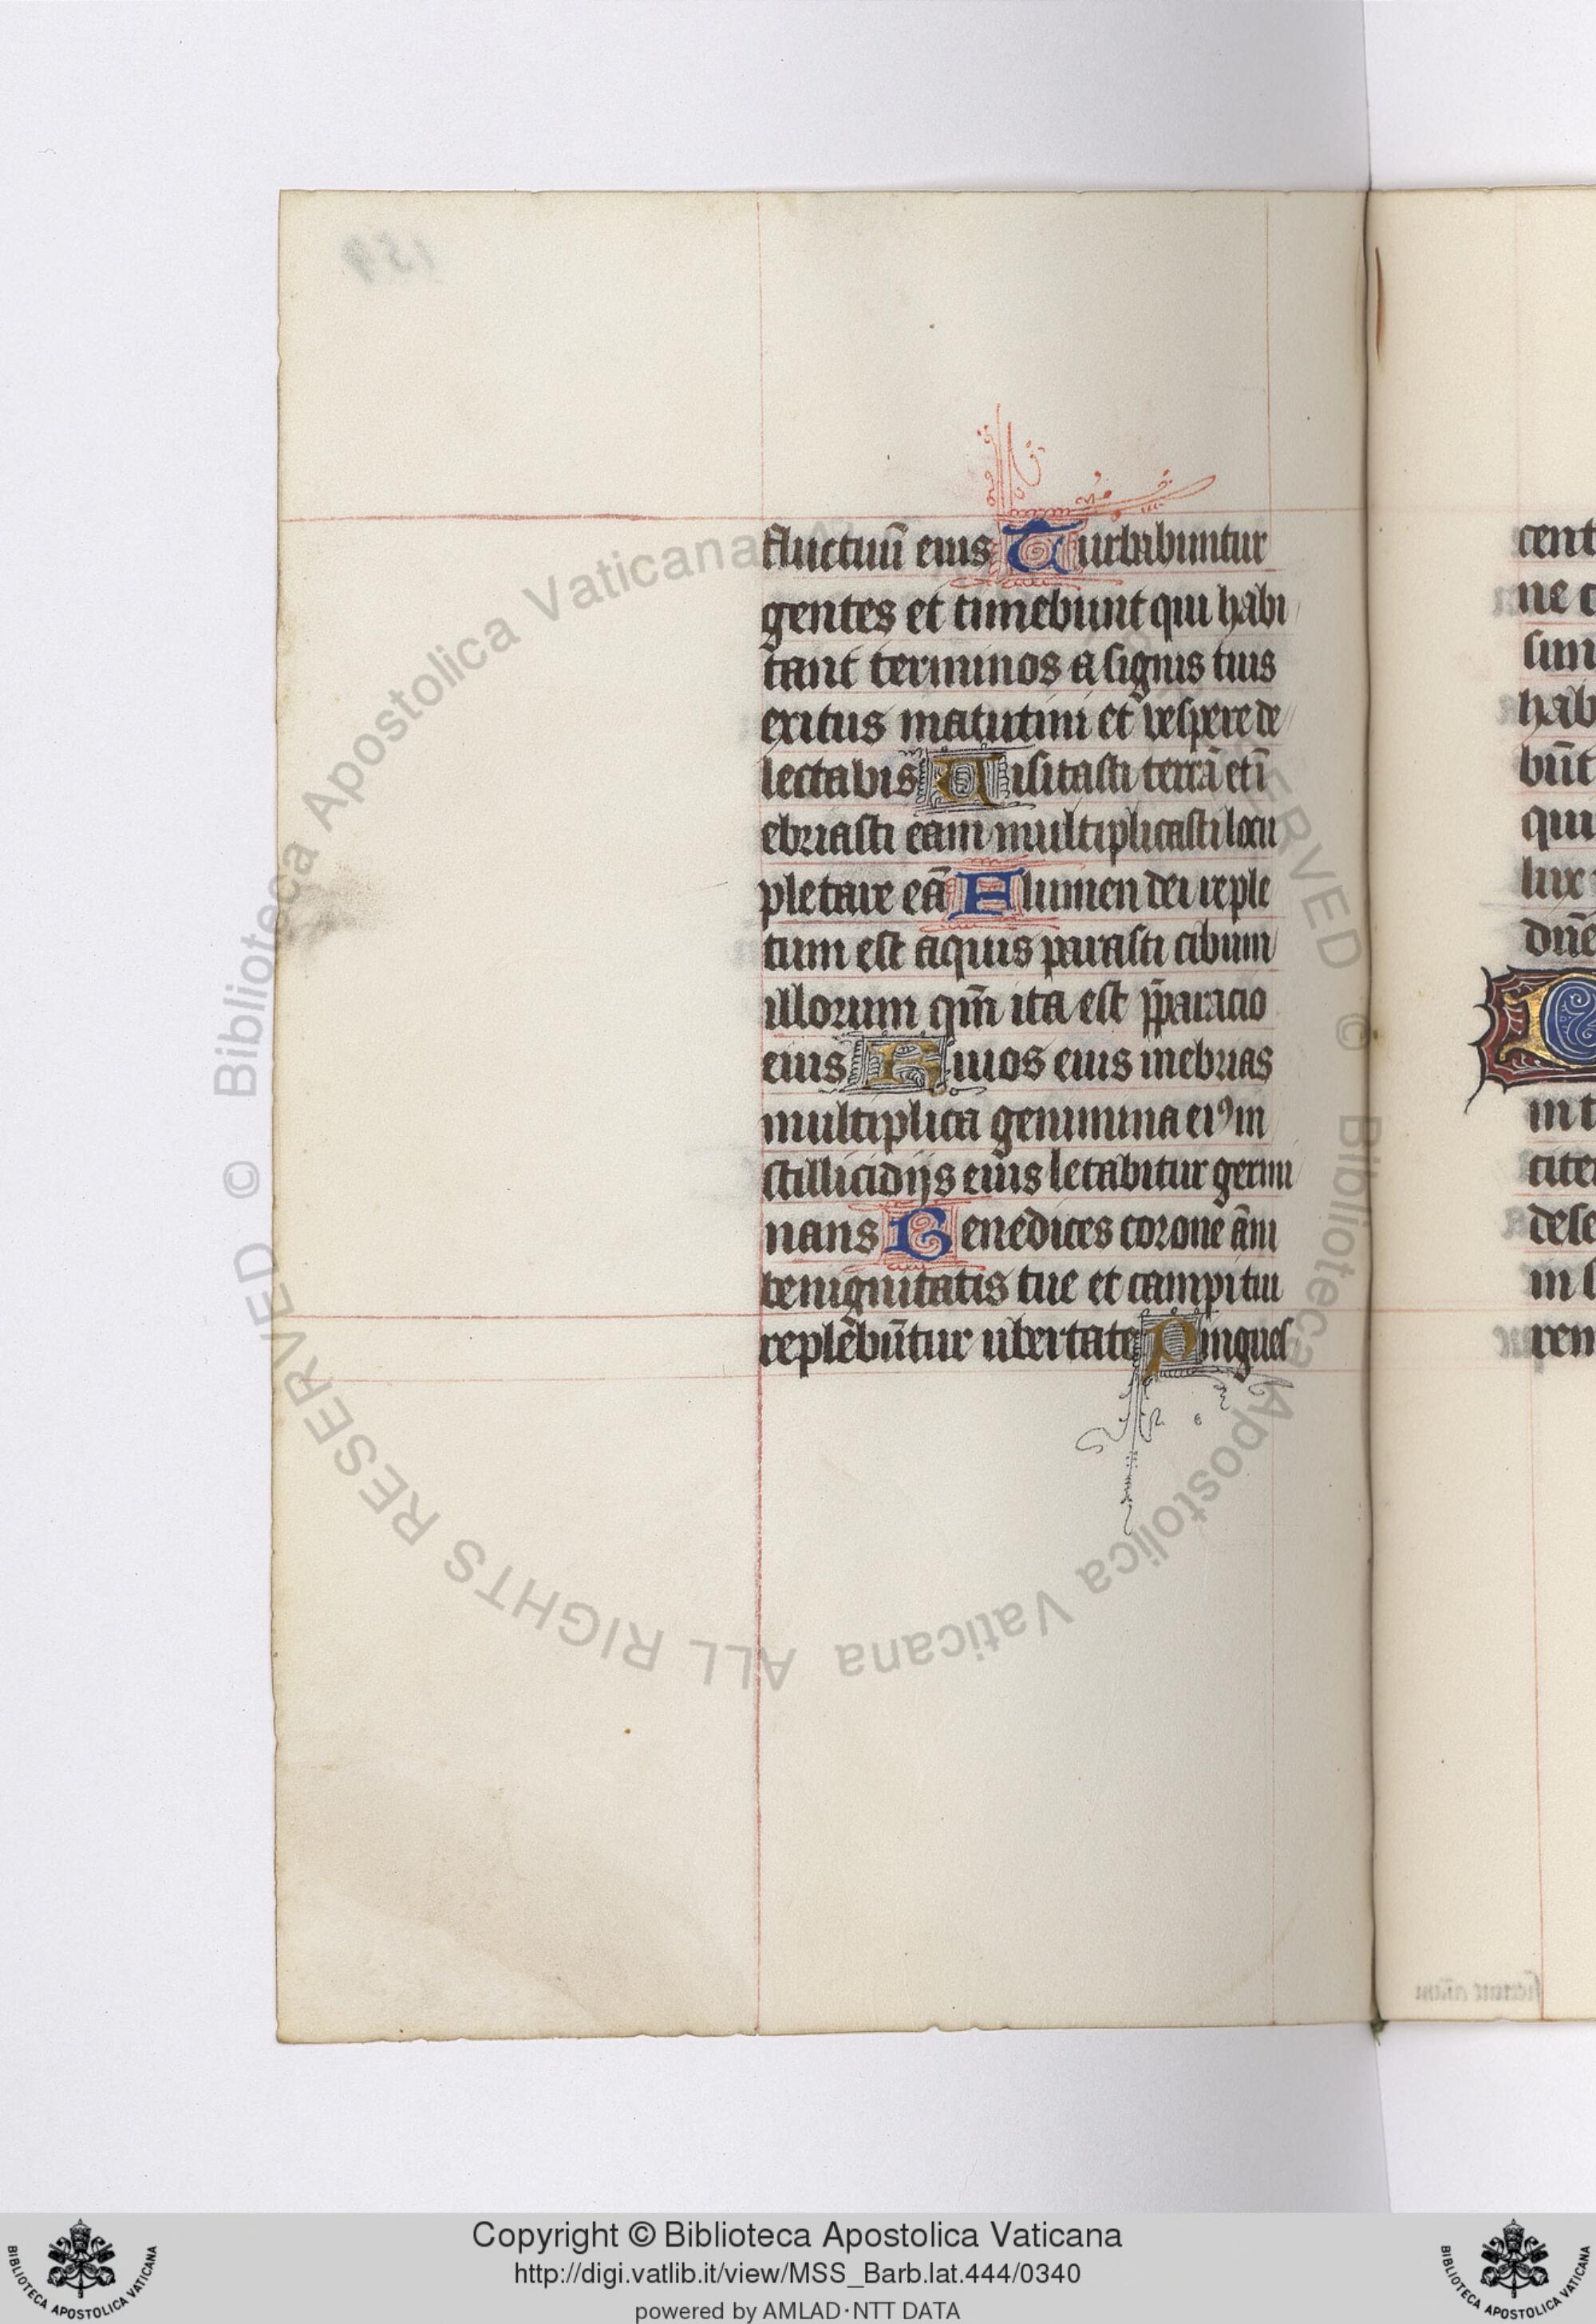 fluctuū eius Turbabuntur
gentes et timebunt qui habi
tant terminos a signis tuis
exitus matutini et vespere de
lectabis Uisitasti terrā et ī
ebriasti eam multiplicasti locu
pletare eā Flumen dei reple
tum est aquis parasti cibum
illorum qm̄ ita est p̄paracio
eius Riuos eius inebrias
multiplica genimina eiꝰ in
stillicidijs eius letabitur germi
nans Benedices corone āni
benignitatis tue et campi tui
replebūtur ubertate Pingues
cent
ne c
sun
hab
būt
qui
lux
dn̄e
in t
cite
dese
in s
rem
© Biblioteca Apostolica Vaticana
ALL RIGHTS RESERVED
Copyright © Biblioteca Apostolica Vaticana
http://digi.vatlib.it/view/MSS_Barb.lat.444/0340
powered by AMLAD·NTT DATA
BIBLIOTECA APOSTOLICA VATICANA
BIBLIOTECA APOSTOLICA VATICANA